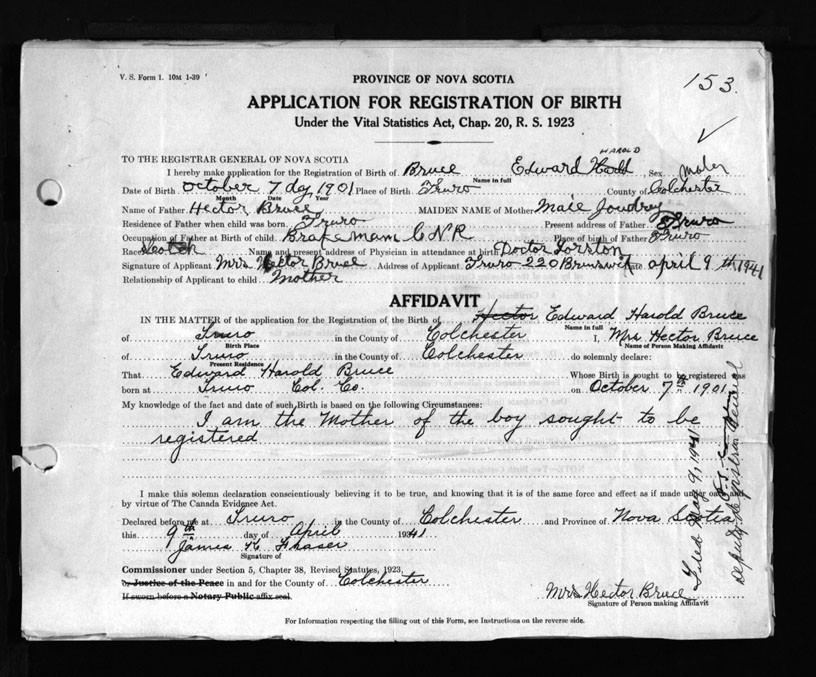 V. S. Form 1. 10M 1-39
153.
PROVINCE OF NOVA SCOTIA
APPLICATION FOR REGISTRATION OF BIRTH
Under the Vital Statistics Act, Chap. 20, R. S. 1923
TO THE REGISTRAR GENERAL OF NOVA SCOTIA
HAROLD
I hereby make application for the Registration of Birth of Bruce Edward Sex
Name in full
Date of Birth October 7 day 1901 Place of Birth Truro County of Colchester
Month Date Year
Name of Father Hector Bruce MAIDEN NAME of Mother Joudrey
Residence of Father when child was born. Truro Present address of Father Truro
Occupation of Father at Birth of child. Brake mam C N R Place of birth of Father Truro
Race Scotch Name and present address of Physician in attendance at birth Doctor
Signature of Applicant Mrs Hector Bruce Address of Applicant Truro 220 Brunswick Date april 9 th 1941
Relationship of Applicant to child Mother
AFFIDAVIT
IN THE MATTER of the application for the Registration of the Birth of Hector Edward Harold Bruce
Name in full
of Truro in the County of Colchester I, Mrs Hector Bruce
Birth Place Name of Person Making Affidavit
of Truro in the County of Colchester do solemnly declare:
Present Residence
That Edward Harold Bruce Whose Birth is sought to be registered was
born at Truro Col. Co. on October 7th 1901
My knowledge of the fact and date of such Birth is based on the following Circumstances:
I am the Mother of the boy sought to be
registered
I make this solemn declaration conscientiously believing it to be true, and knowing that it is of the same force and effect as if made under oath and
by virtue of The Canada Evidence Act.
Declared before me at Truro in the County of Colchester and Province of Nova Scotia
this 9th day of April 1941
James Fraser
Signature of
Commissioner under Section 5, Chapter 38, Revised Statutes, 1923,
or Justice of the Peace in and for the County of Colchester
If sworn before a Notary Public affix seal.
Mrs Hector Bruce
Signature of Person making Affidavit
For Information respecting the filling out of this Form, see Instructions on the reverse side.
Filed May 9, 1941
Deputy Registrar General